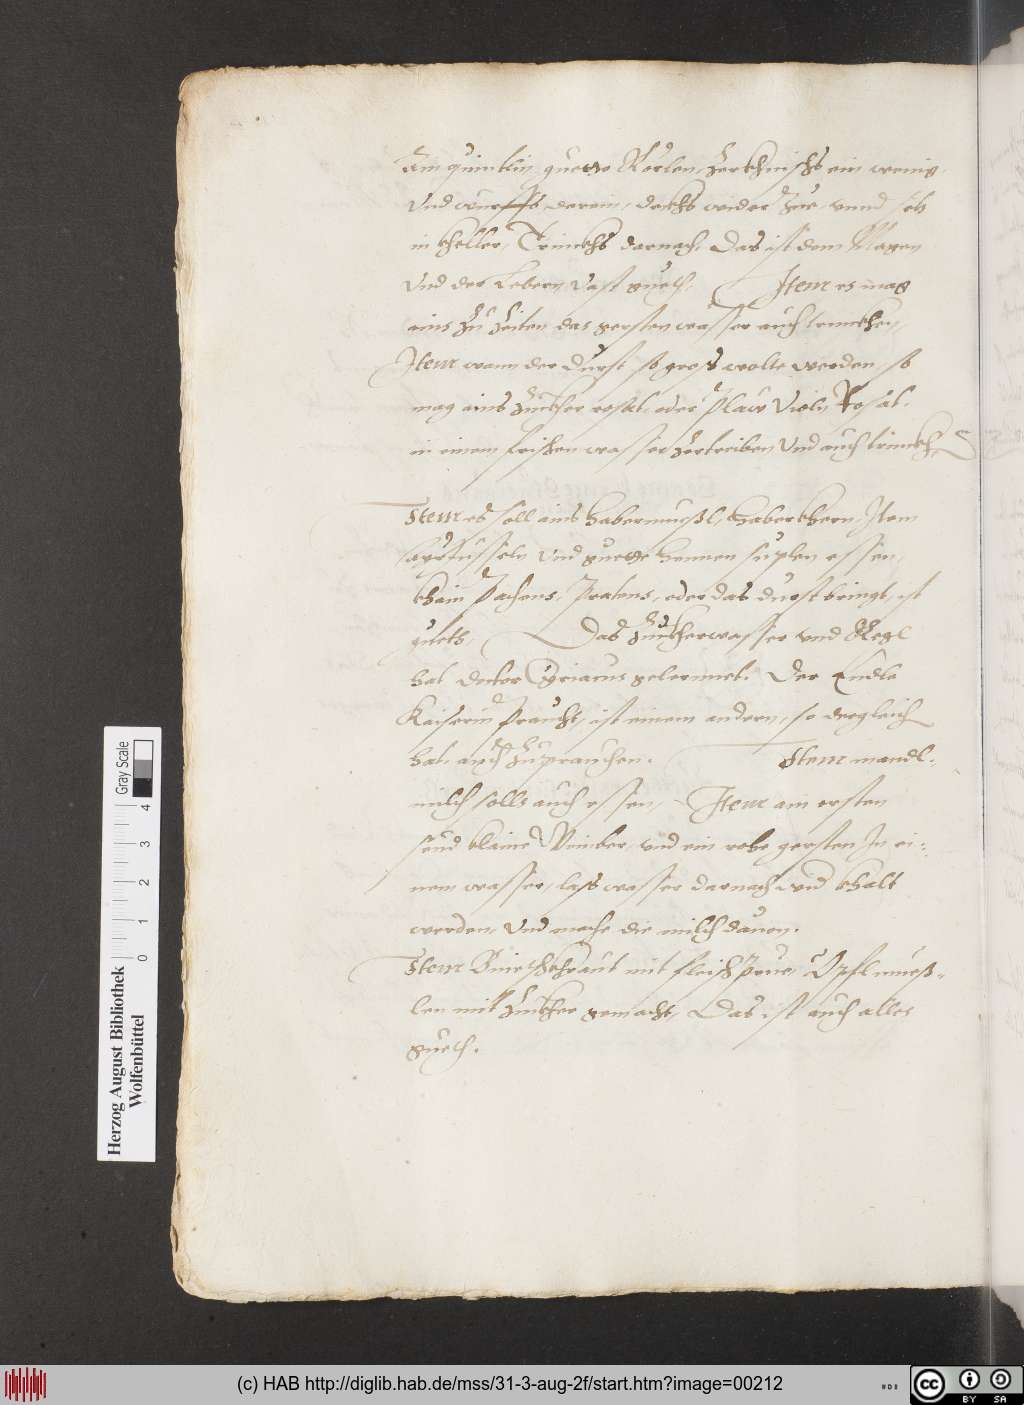 Ain quintlin guette Perlen, Zerkhnischs ein wenig,
Vnd würffs darein, deckhs wider Zue, vnnd setz
in kheller, Trinckhs darnach, Das ist dem Magen
vnd der Lebern vast gueth. Item es mag
ains Zu Zeiten das gersten wasser auch trinckhen,
Item wann der durst so gros wolte werden, so
mag ains Zuckher rosat, oder plaw Violn Rosat,
in einem frischen wasser Zertreiben Vnd auch trinckh
Item es soll ains habermuesßl, haberkhern, Item
Vnd guette hennen suplen essen,
khain Pachens, Pratens, oder das durst bringt, ist
gueth, Das Zuckherwasser vnd Regl
hat doctor Cyriacus gelernnet. Der Endle
Kaiserin praucht, ist einem andern, so dergleich
hat, auch Zuprauchen. Item mandl-
milch solls auch essen, Item ain ersten
seud klaine Weinber, vnd ein rohe gersten In ei-
nem wasser, lass wasser darnach vnd khalt
werden, Vnd mache die milch dauon.
Item khraut mit fleischprue, Öpfl muess-
len mit Zuckher gemacht, Das ist auch alles
gueth.
Gray Scale
0 1 2 3 4
Herzog August Bibliothek
Wolfenbüttel
(c) HAB http://diglib.hab.de/mss/31-3-aug-2f/start.htm?image=00212
cc BY SA